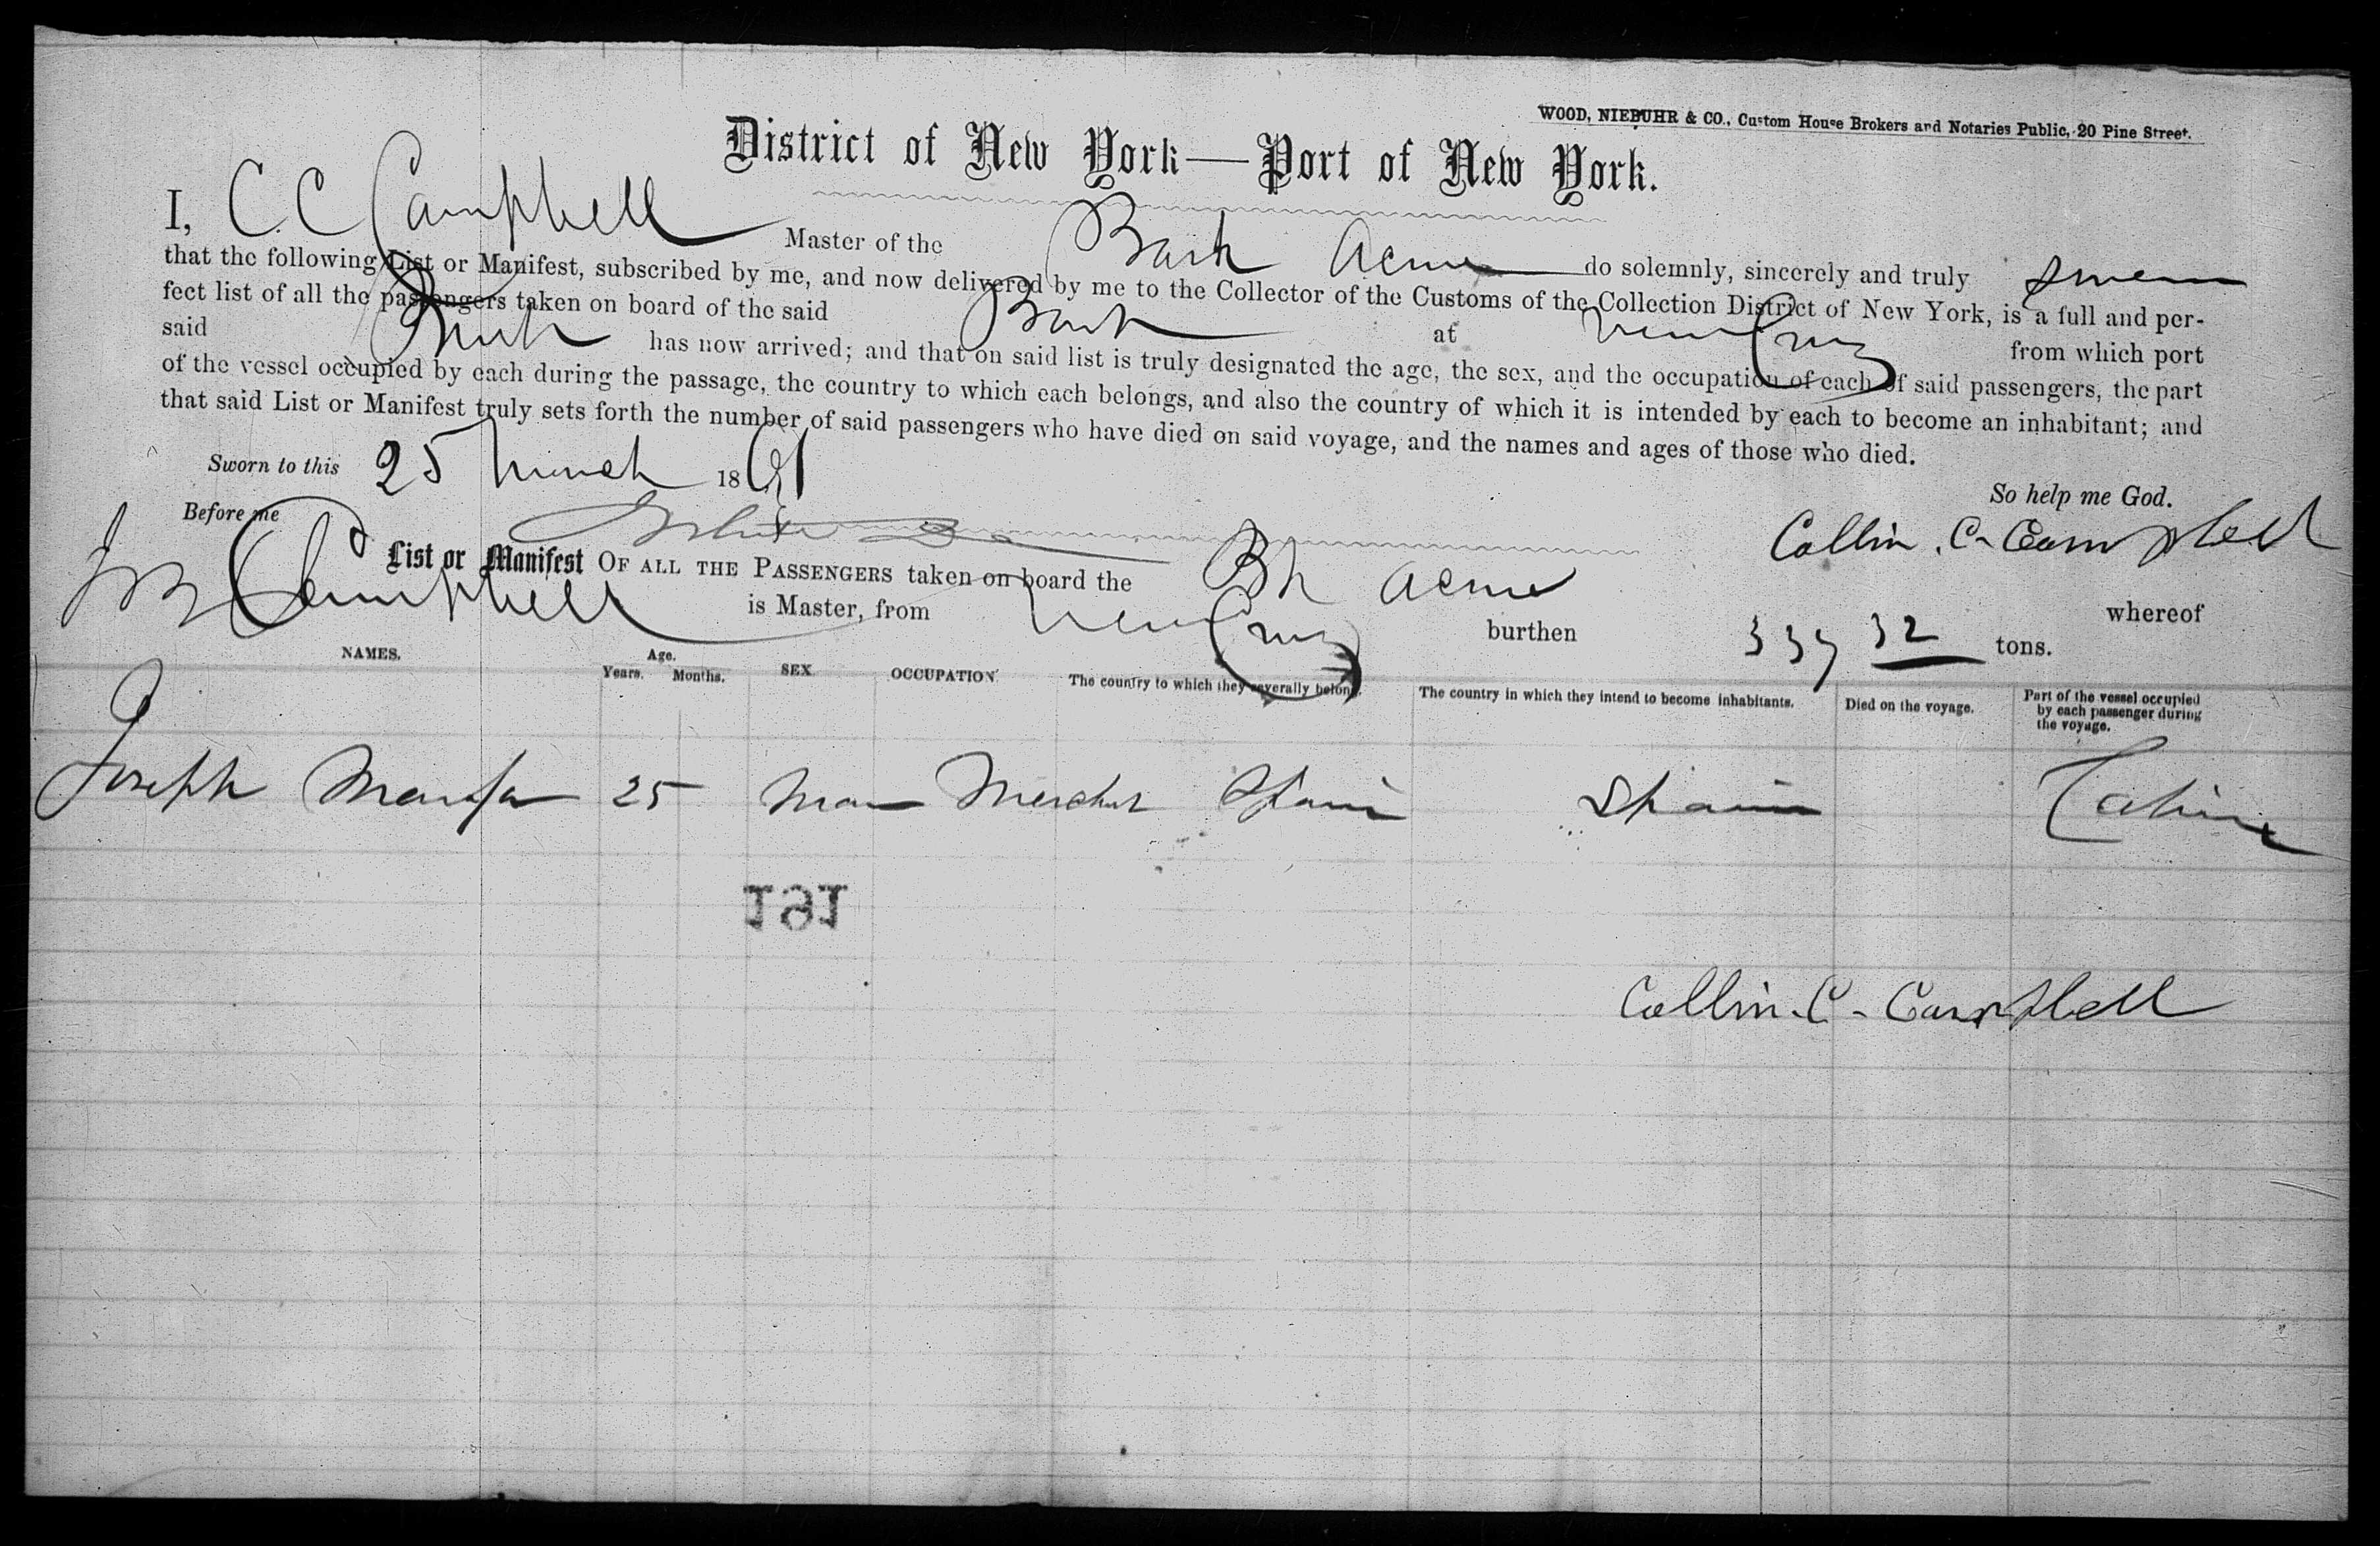 WOOD, NIEBUHR & CO., Custom House Brokers and Notaries Public, 20 Pine Street.
District of New York—Port of New York.
I, C. C Campbell Master of the Bark Acme do solemnly, sincerely and truly swear
that the following List or Manifest, subscribed by me, and now delivered by me to the Collector of the Customs of the Collection District of New York, is a full and per-
fect list of all the passengers taken on board of the said Bark at Vera Cruz from which port
said Bark has now arrived; and that on said list is truly designated the age, the sex, and the occupation of each of said passengers, the part
of the vessel occupied by each during the passage, the country to which each belongs, and also the country of which it is intended by each to become an inhabitant; and
that said List or Manifest truly sets forth the number of said passengers who have died on said voyage, and the names and ages of those who died.
Sworn to this 25 March 1861
So help me God.
Before me
Collin. C- Campbell
List or Manifest OF ALL THE PASSENGERS taken on board the Bk Acme whereof
Campbell is Master, from Vera Cruz burthen 32 tons.
NAMES. Age. Years. Months. SEX OCCUPATION The country to which they severally belong. The country in which they intend to become inhabitants. Died on the voyage. Part of the vessel occupied by each passenger during the voyage.
Joseph 25 Man Merchant Spain Spain Cabin
191
Collin. C- Campbell